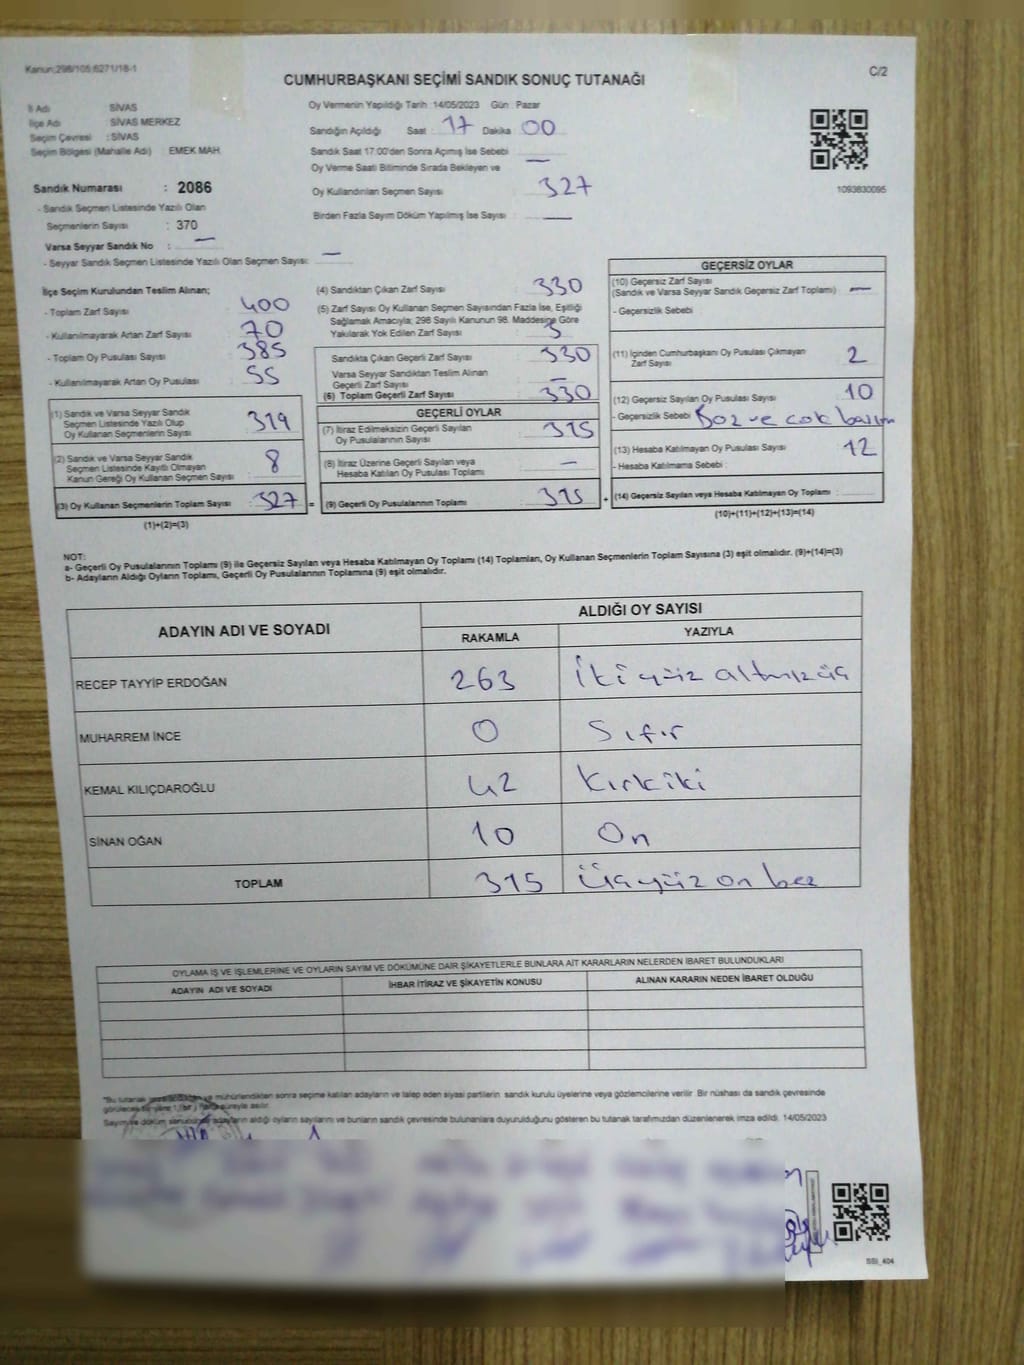 Kanun:298/105;6271/18-1
C/2
CUMHURBAŞKANI SEÇİMİ SANDIK SONUÇ TUTANAĞI
İl Adı SİVAS
İlçe Adı : SİVAS MERKEZ
Seçim Çevresi : SİVAS
Seçim Bölgesi (Mahalle Adı) : EMEK MAH.
Sandık Numarası : 2086
- Sandık Seçmen Listesinde Yazılı Olan
Seçmenlerin Sayısı : 370
Varsa Seyyar Sandık No : —
- Seyyar Sandık Seçmen Listesinde Yazılı Olan Seçmen Sayısı: —
Oy Vermenin Yapıldığı Tarih :14/05/2023 Gün : Pazar
Sandığın Açıldığı Saat : 17 Dakika : 00
Sandık Saat 17:00'den Sonra Açılmış İse Sebebi : —
Oy Verme Saati Bitiminde Sırada Bekleyen ve
Oy Kullandırılan Seçmen Sayısı : 327
Birden Fazla Sayım Döküm Yapılmış İse Sayısı : —
1093830095
İlçe Seçim Kurulundan Teslim Alınan;
- Toplam Zarf Sayısı : 400
- Kullanılmayarak Artan Zarf Sayısı : 70
- Toplam Oy Pusulası Sayısı : 385
- Kullanılmayarak Artan Oy Pusulası : 55
(1) Sandık ve Varsa Seyyar Sandık
Seçmen Listesinde Yazılı Olup
Oy Kullanan Seçmenlerin Sayısı : 319
(2) Sandık ve Varsa Seyyar Sandık
Seçmen Listesinde Kayıtlı Olmayan
Kanun Gereği Oy Kullanan Seçmen Sayısı : 8
(3) Oy Kullanan Seçmenlerin Toplam Sayısı : 327 =
(1)+(2)=(3)
(4) Sandıktan Çıkan Zarf Sayısı : 330
(5) Zarf Sayısı Oy Kullanan Seçmen Sayısından Fazla İse, Eşitliği
Sağlamak Amacıyla; 298 Sayılı Kanunun 98. Maddesine Göre
Yakılarak Yok Edilen Zarf Sayısı : 3
Sandıkta Çıkan Geçerli Zarf Sayısı : 330
Varsa Seyyar Sandıktan Teslim Alınan
Geçerli Zarf Sayısı : —
(6) Toplam Geçerli Zarf Sayısı : 330
GEÇERLİ OYLAR
(7) İtiraz Edilmeksizin Geçerli Sayılan
Oy Pusulalarının Sayısı : 315
(8) İtiraz Üzerine Geçerli Sayılan veya
Hesaba Katılan Oy Pusulası Toplamı : —
(9) Geçerli Oy Pusulalarının Toplamı : 315 +
GEÇERSİZ OYLAR
(10) Geçersiz Zarf Sayısı
(Sandık ve Varsa Seyyar Sandık Geçersiz Zarf Toplamı) : —
- Geçersizlik Sebebi :
(11) İçinden Cumhurbaşkanı Oy Pusulası Çıkmayan
Zarf Sayısı : 2
(12) Geçersiz Sayılan Oy Pusulası Sayısı : 10
- Geçersizlik Sebebi : Boz ve çok basım
(13) Hesaba Katılmayan Oy Pusulası Sayısı : 12
- Hesaba Katılmama Sebebi :
(14) Geçersiz Sayılan veya Hesaba Katılmayan Oy Toplamı :
(10)+(11)+(12)+(13)=(14)
NOT:
a- Geçerli Oy Pusulalarının Toplamı (9) ile Geçersiz Sayılan veya Hesaba Katılmayan Oy Toplamı (14) Toplamları, Oy Kullanan Seçmenlerin Toplam Sayısına (3) eşit olmalıdır. (9)+(14)=(3)
b- Adayların Aldığı Oyların Toplamı, Geçerli Oy Pusulalarının Toplamına (9) eşit olmalıdır.
ADAYIN ADI VE SOYADI ALDIĞI OY SAYISI
RAKAMLA YAZIYLA
RECEP TAYYİP ERDOĞAN 263 İkiyüz altmışüç
MUHARREM İNCE 0 Sıfır
KEMAL KILIÇDAROĞLU 42 Kırkiki
SİNAN OĞAN 10 On
TOPLAM 315 Üçyüz on beş
OYLAMA İŞ VE İŞLEMLERİNE VE OYLARIN SAYIM VE DÖKÜMÜNE DAİR ŞİKAYETLERLE BUNLARA AİT KARARLARIN NELERDEN İBARET BULUNDUKLARI
ADAYIN ADI VE SOYADI İHBAR İTİRAZ VE ŞİKAYETİN KONUSU ALINAN KARARIN NEDEN İBARET OLDUĞU
"Bu tutanak ve mühürlendikten sonra seçime katılan adayların ve talep eden siyasi partilerin sandık kurulu üyelerine veya gözlemcilerine verilir. Bir nüshası da sandık çevresinde
görülecek bir yere 1 süreyle asılır.
Sayım ve döküm sonucunda adayların aldığı oyların sayılarını ve bunların sandık çevresinde bulunanlara duyurulduğunu gösteren bu tutanak tarafımızdan düzenlenerek imza edildi. 14/05/2023
SSI_404